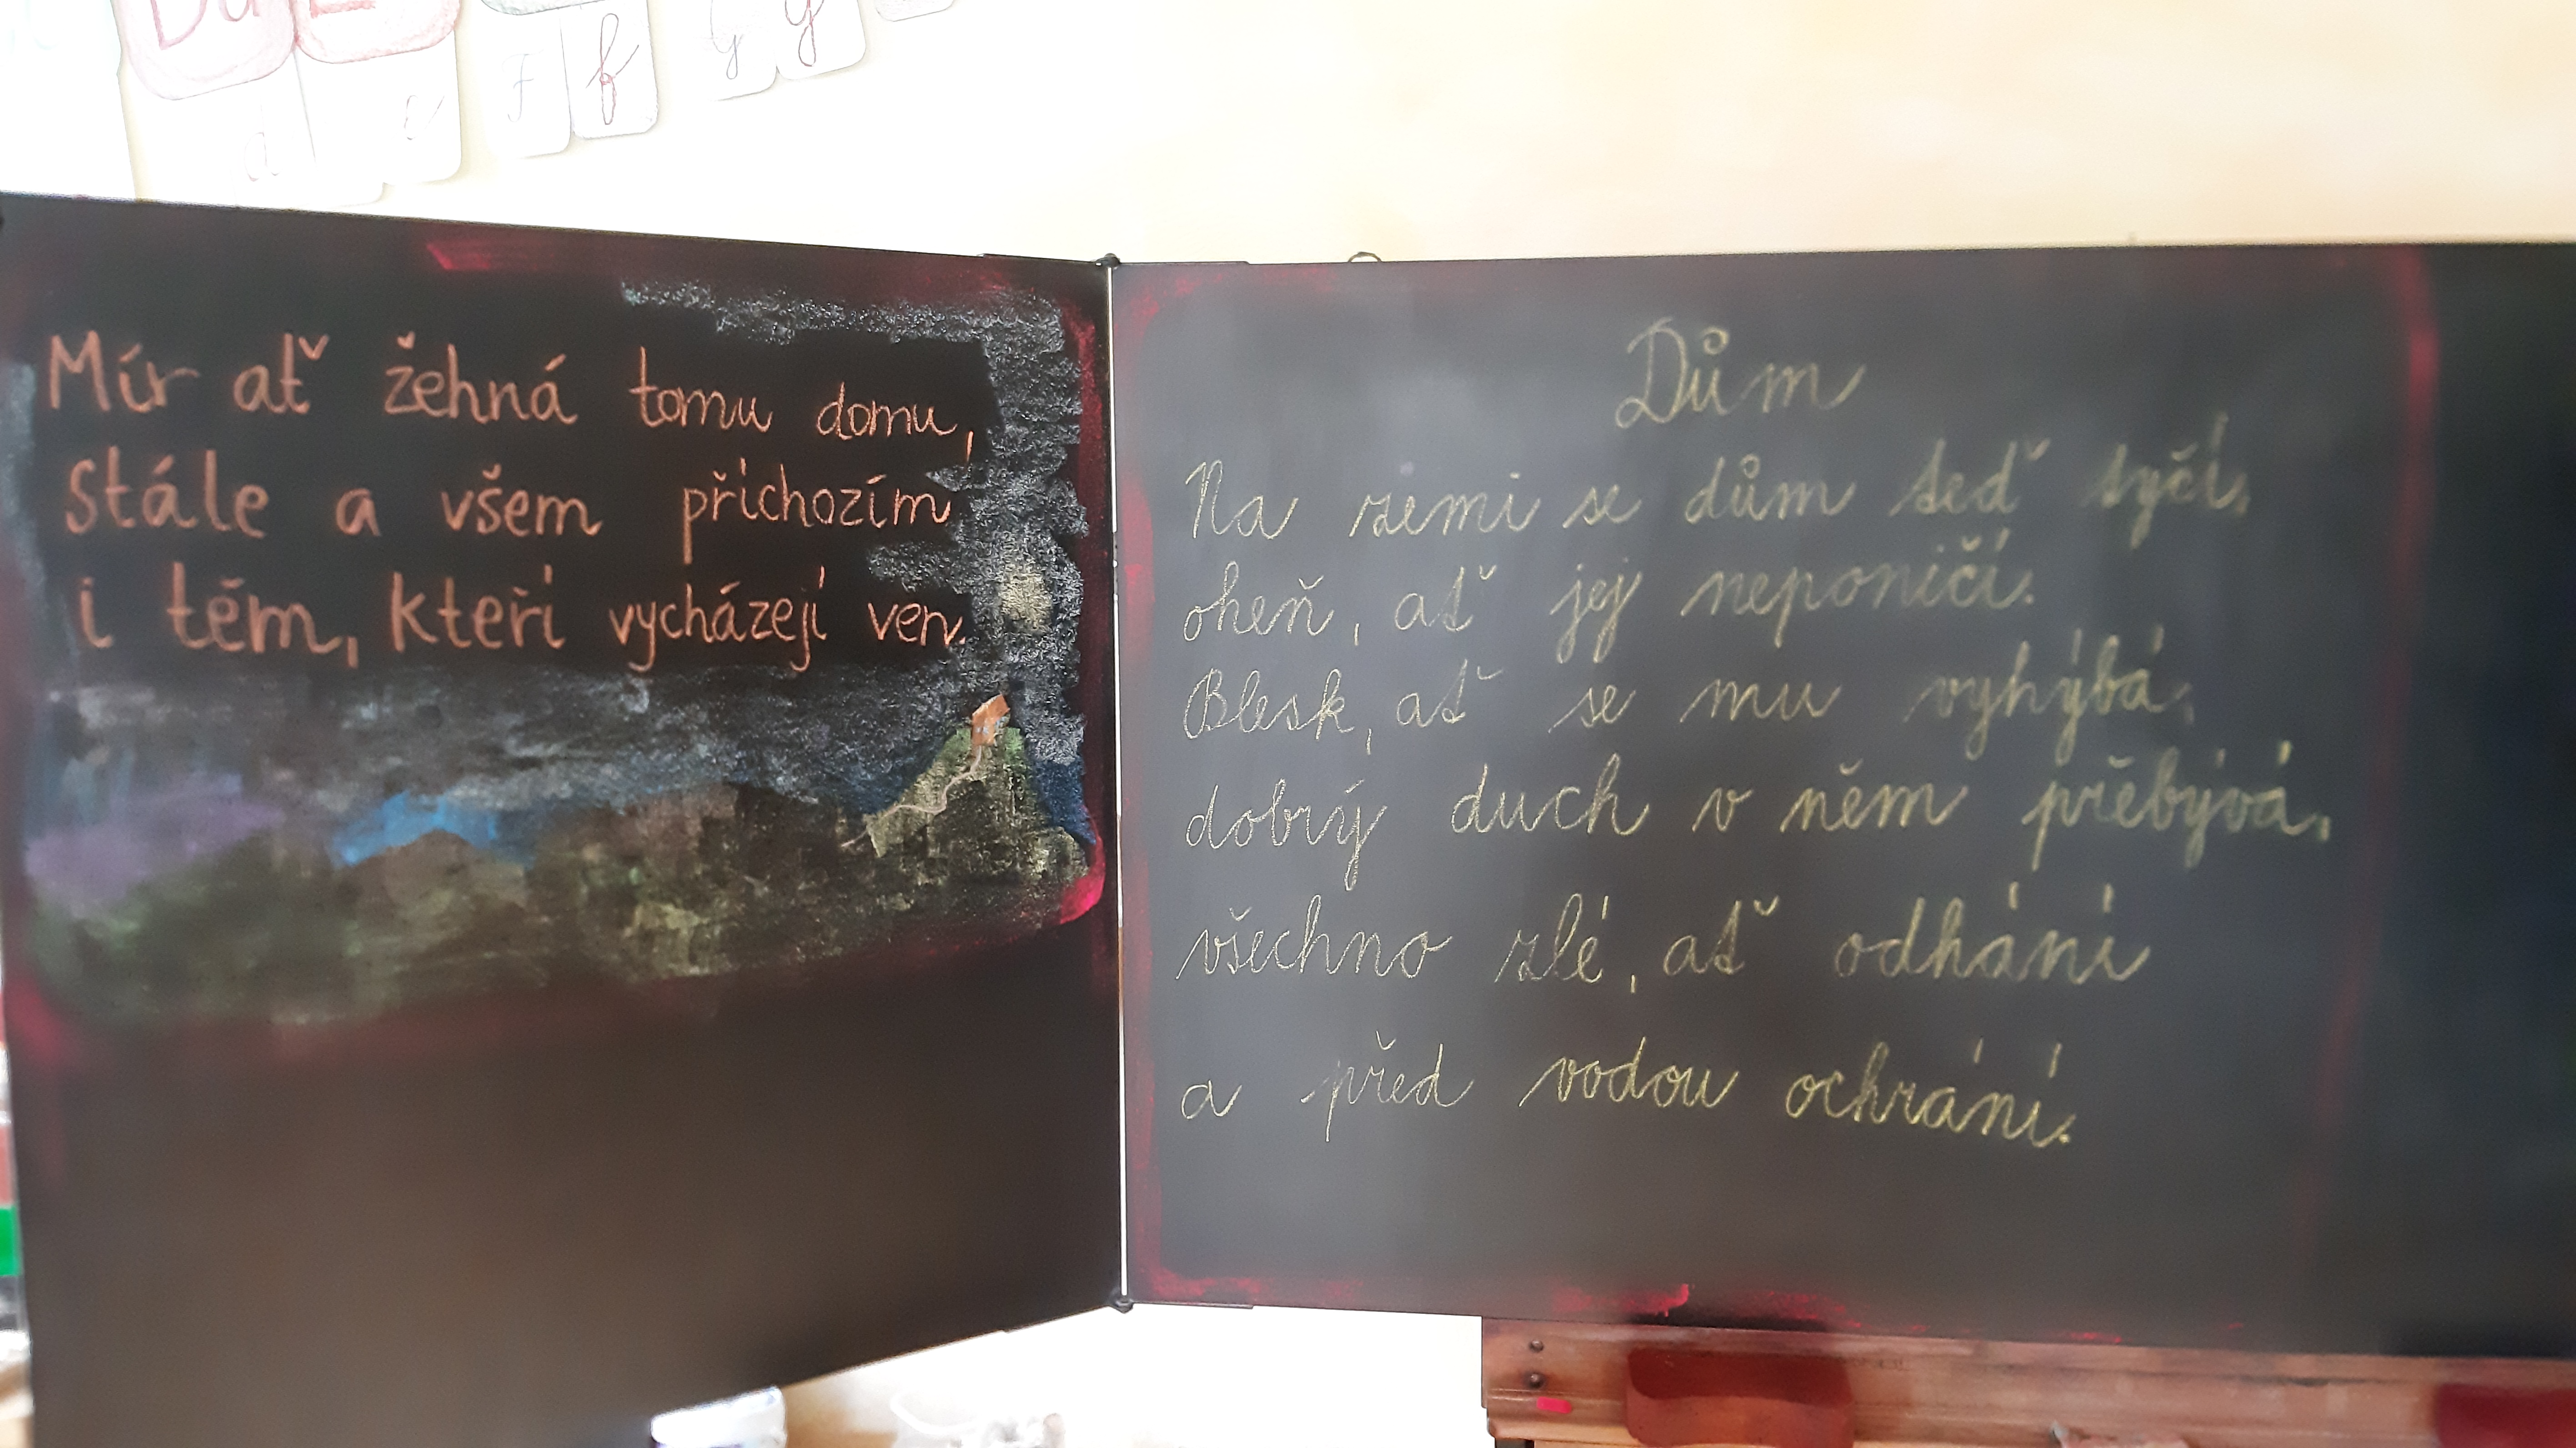 d e F f G g
Mír ať žehná tomu domu,
stále a všem příchozím
i těm, kteří vycházejí ven.
Dům
Na zemi se dům teď tyčí,
oheň, ať jej neponičí.
Blesk, ať se mu vyhýbá,
dobrý duch v něm přebývá,
všechno zlé, ať odhání
a před vodou ochrání.